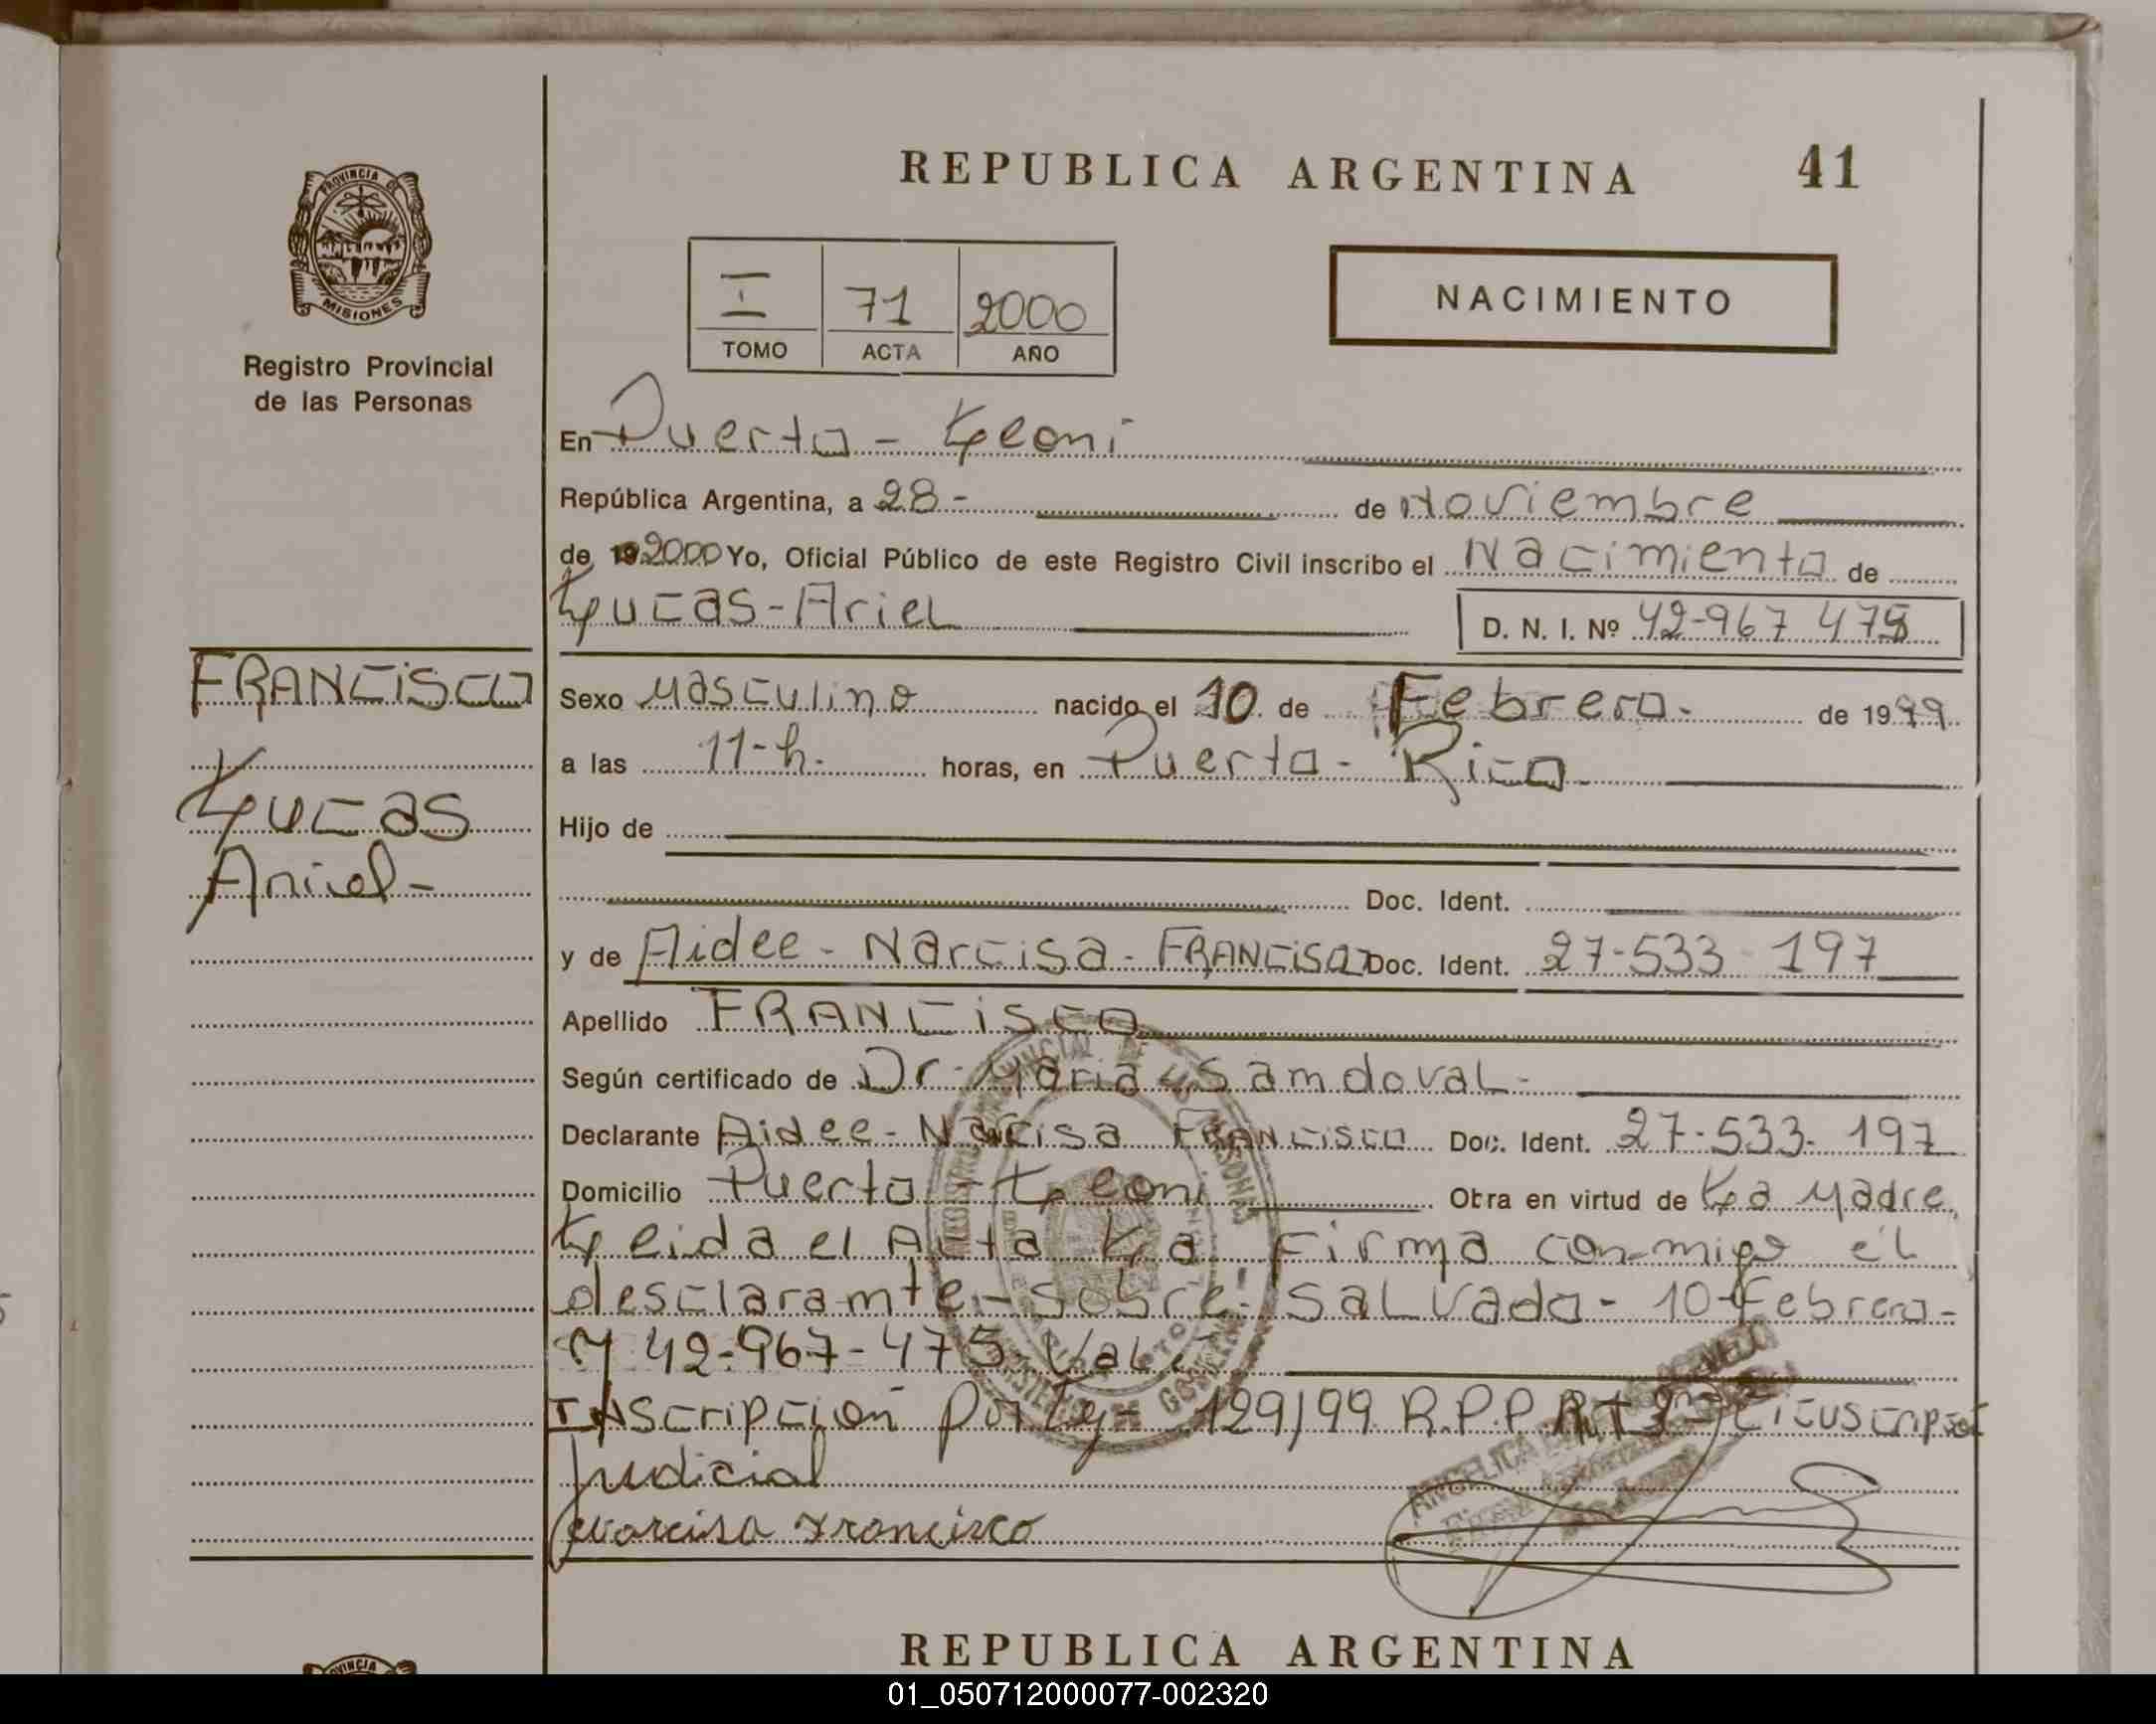 REPUBLICA ARGENTINA 41
PROVINCIA DE
MISIONES
Registro Provincial
de las Personas
I 71 2000
TOMO ACTA AÑO
NACIMIENTO
En Puerto - Leoni
República Argentina, a 28 - de Noviembre
de 19 2000 Yo, Oficial Público de este Registro Civil inscribo el Nacimiento de
Lucas - Ariel D. N. I. Nº 42-967 475
FRANCISCO
Lucas
Ariel -
Sexo Masculino nacido el 10 de Febrero. de 1999
a las 11-h. horas, en Puerto - Rico
Hijo de
Doc. Ident.
y de Aidee - Narcisa - FRANCISCO Doc. Ident. 27-533-197
Apellido FRANCISCO
Según certificado de Dr. Maria Samdoval -
Declarante Aidee - Narcisa FRANCISCO Doc. Ident. 27-533-197
Domicilio Puerto - Leoni Obra en virtud de La Madre,
Leida el Acta La Firma con-migo él
desclaramte - Sobre: SaLvado - 10 - Febrero -
y 42-967-475 - Vale
INscripción por Ley - 129/99 R.P.P.
Judicial
Narcisa Francisco
REPUBLICA ARGENTINA
PROVINCIA
01_050712000077-002320